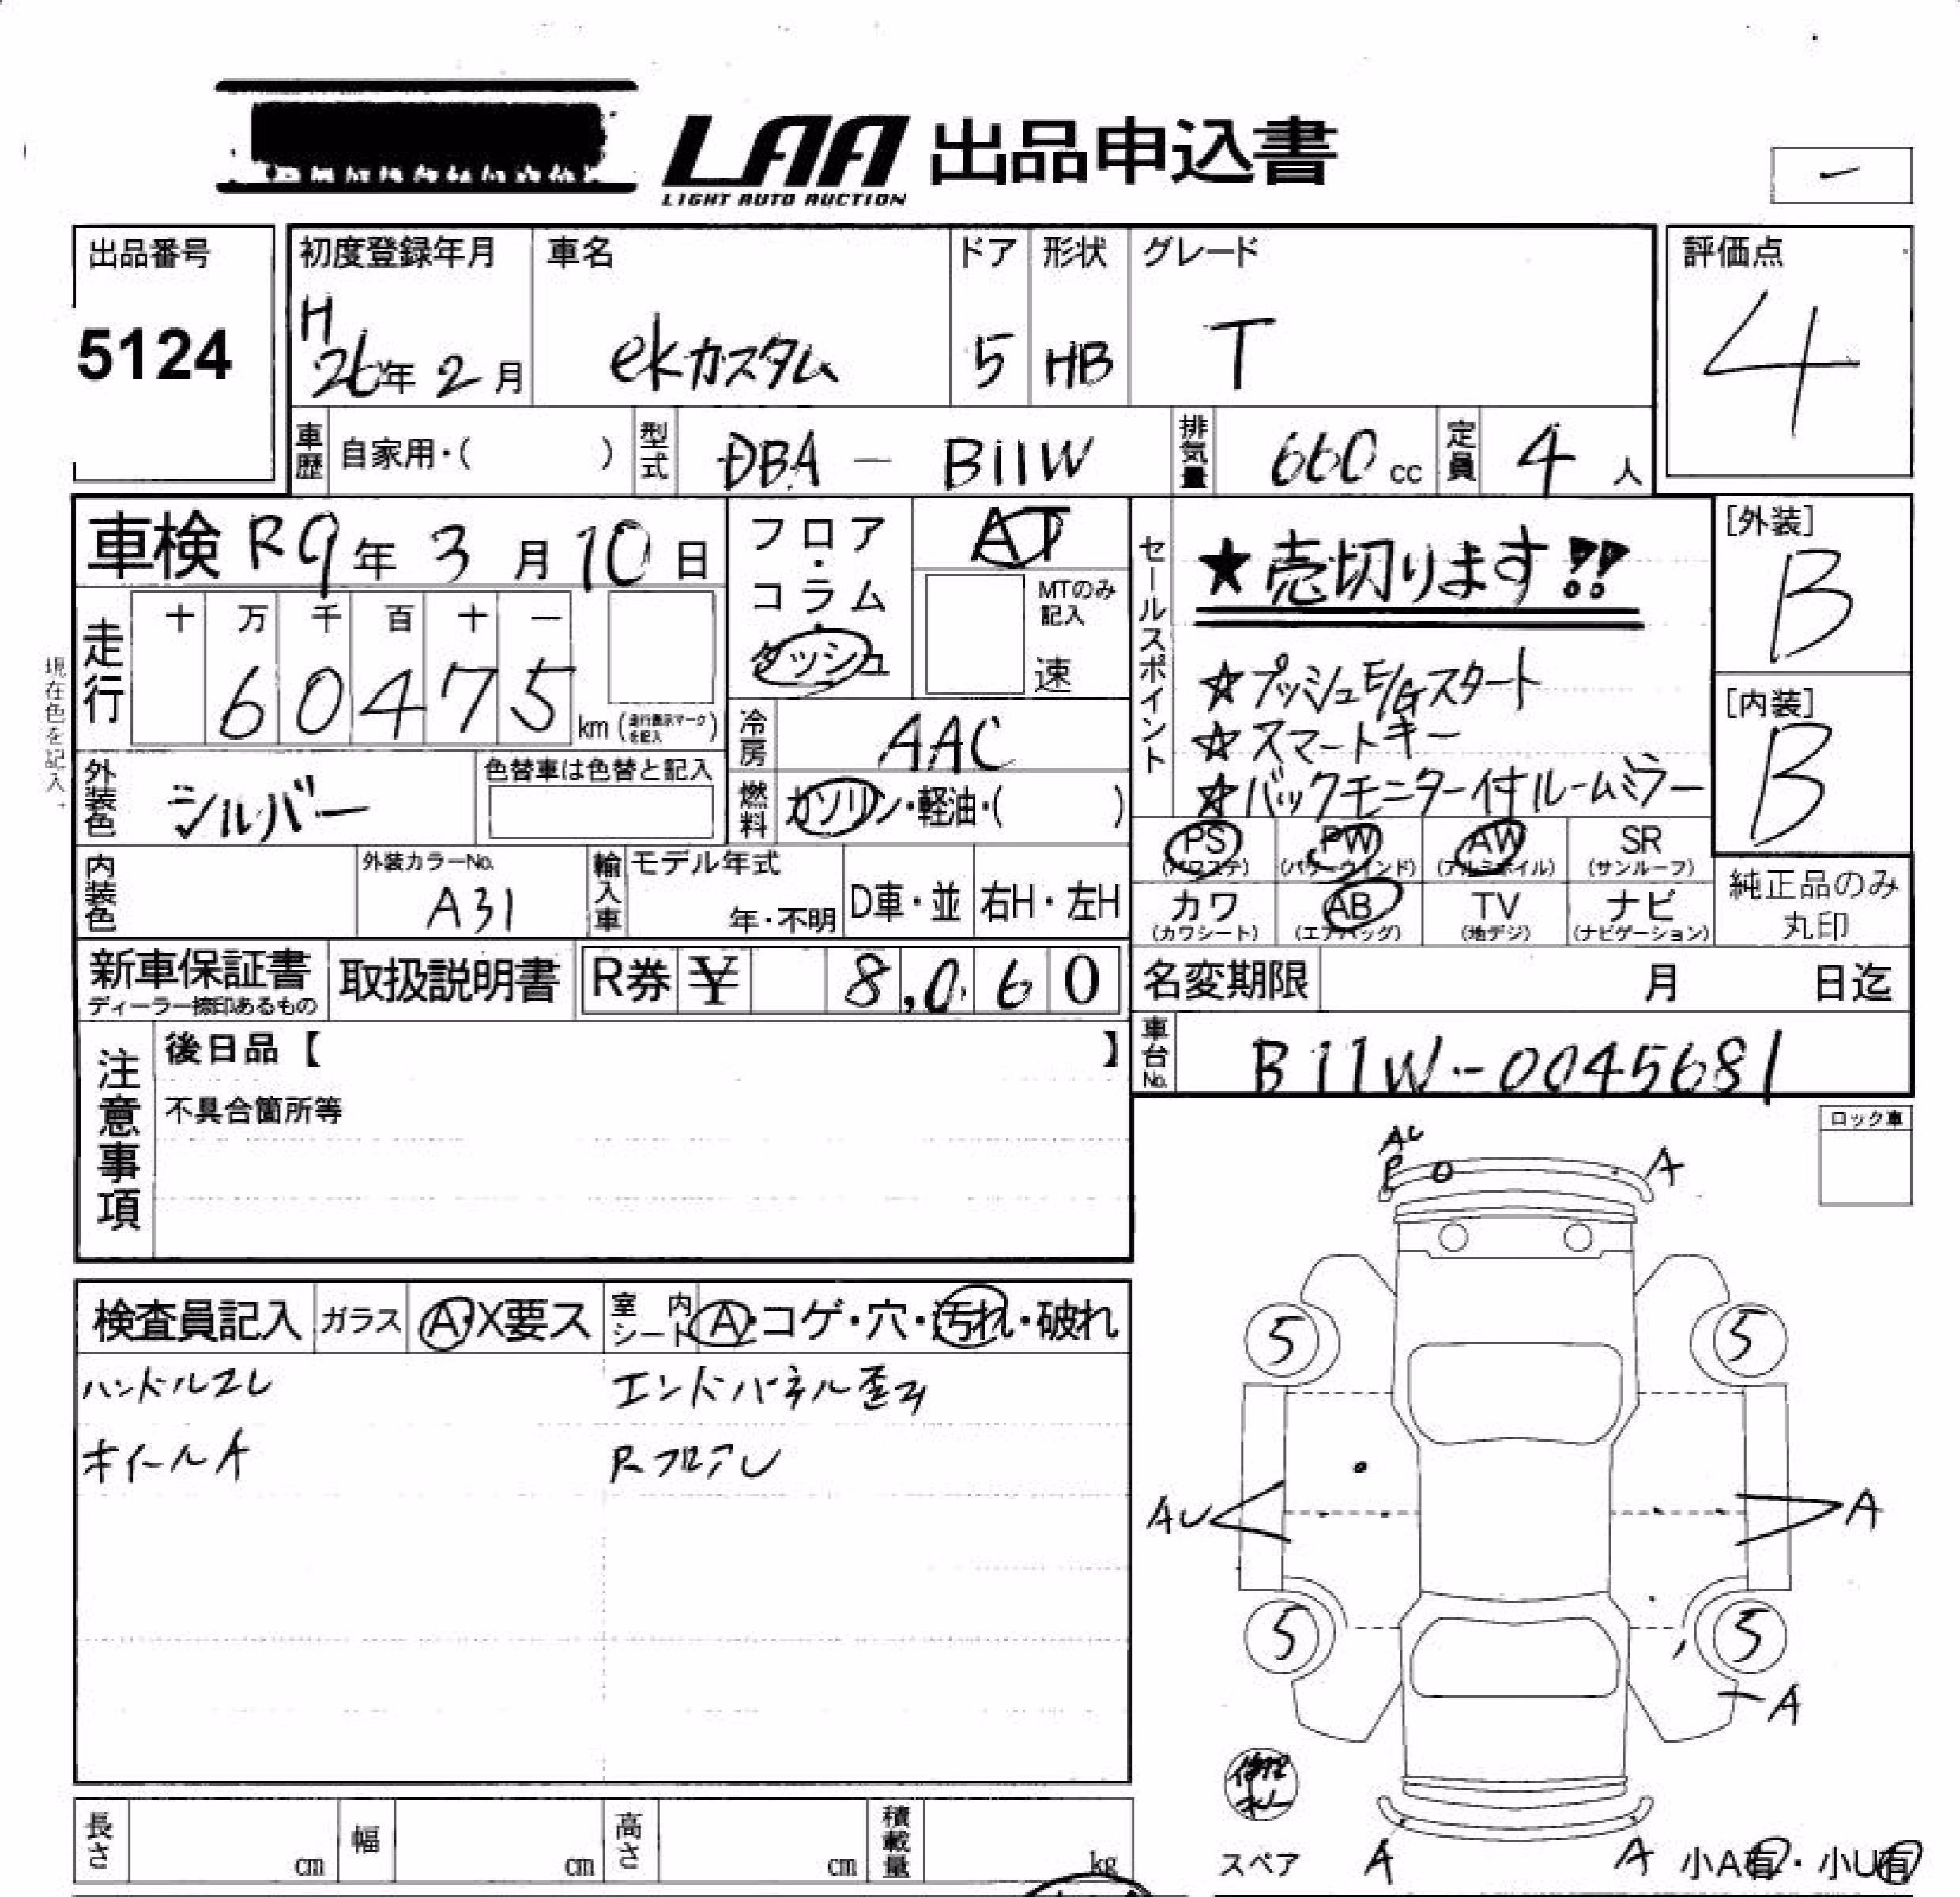 LAA 出品申込書
LIGHT AUTO AUCTION
出品番号 初度登録年月 車名 ドア 形状 グレード 評価点
5124 H26年2月 ekカスタム 5 HB T 4
車歴 自家用・( ) 型式 DBA - B11W 排気量 660cc 定員 4人
車検 R9年3月10日
フロア・コラム・ダッシュ AT
MTのみ記入 速
セールスポイント
★売切ります!!
☆プッシュE/Gスタート
☆スマートキー
☆バックモニター付ルームミラー
[外装] B
[内装] B
走行 十 万 千 百 十 一
60475 km (走行表示マークを記入)
現在色を記入。
冷房 AAC
外装色 シルバー 色替車は色替と記入
燃料 ガソリン・軽油・( )
PS (パワステ) PW (パワーウインド) AW (アルミホイル) SR (サンルーフ)
カワ (カワシート) AB (エアバッグ) TV (地デジ) ナビ (ナビゲーション)
純正品のみ丸印
内装色 外装カラーNo. A31 輸入車 モデル年式 年・不明 D車・並 右H・左H
新車保証書 取扱説明書 R券 ¥ 8,060
ディーラー捺印あるもの
名変期限 月 日迄
車台No. B11W-0045681
注意事項
後日品【 】
不具合箇所等
ロック車
検査員記入 ガラス A・X要ス 室内シート A・コゲ・穴・汚れ・破れ
ハンドルスレ エンドパネル歪み
ホイールA RフロアU
AU
A
5 5
AU A
5 5
A
スペア A A 小A有・小U有
長さ cm 幅 cm 高さ cm 積載量 kg